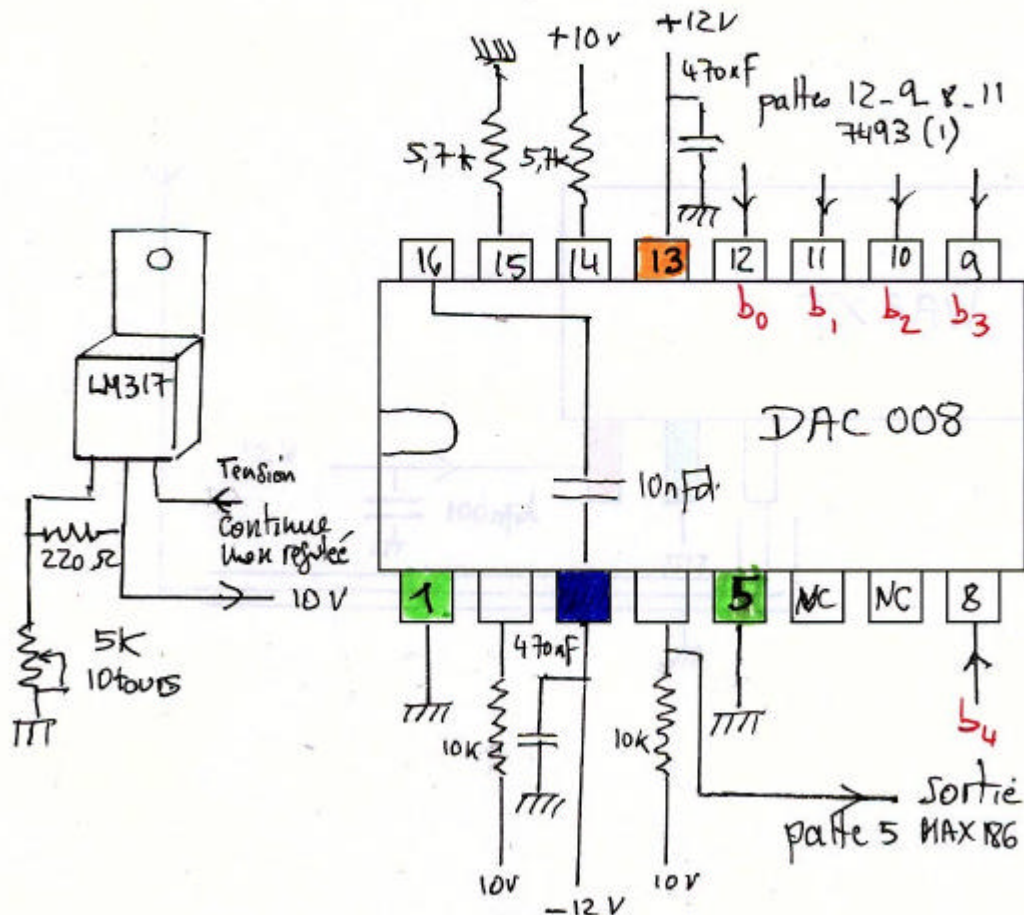 +10v
+12V
470nF
pattes 12-9-8-11
7493 (1)
5,7k
5,7k
16
15
14
13
12
11
10
9
b0
b1
b2
b3
LM317
DAC 008
10nfd
Tension
Continue
non regulée
220Ω
10V
1
5
NC
NC
8
5K
10tours
470nF
10K
10K
b4
Sortie
patte 5 MAX186
10V
-12V
10V